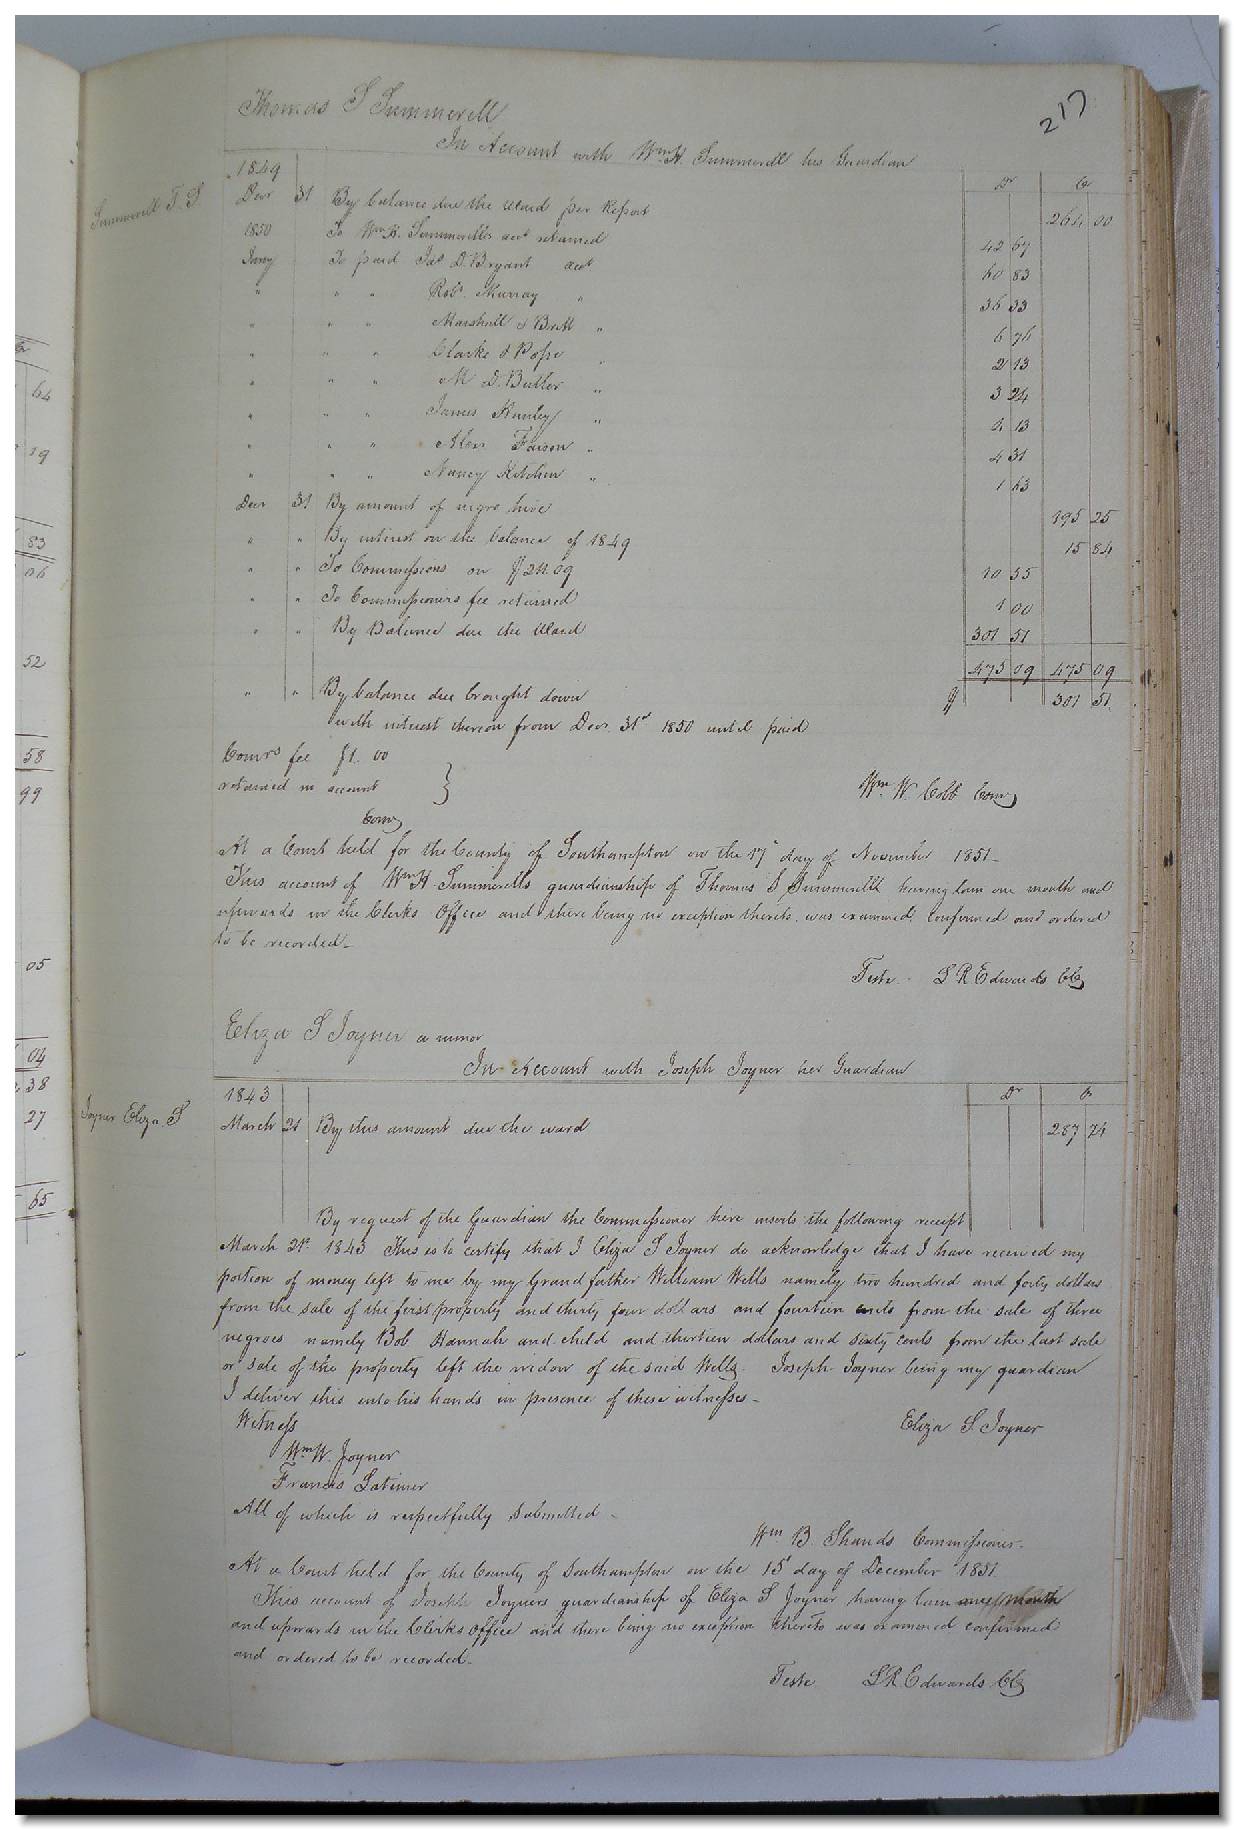 217
Thomas S Summerell
In Account with Wm H. Summerell his Guardian
Summerell T. S.
1849 Dr Cr
Decr 31 By balance due the ward per Report 264 00
1850 To Wm H. Summerells acct returned 42 67
Jany To paid Jas D. Bryant acct 60 83
" " " Robt. Murray " 36 33
" " " Marshall & Britt " 6 76
" " " Clarke & Pope " 2 13
" " " M D. Butler " 3 24
" " " James " 2 13
" " " Alex Faison " 4 31
" " " Nancy Kitchen " 1 63
Decr 31 By amount of negro hire 195 25
" " By interest on the balance of 1849 15 84
" " To Commissions on $211.09 10 55
" " To Commissioners fee returned 1 00
" " By Balance due the Ward 301 51
475 09 475 09
" " By balance due brought down $ 301 51
with interest thereon from Decr. 31st 1850 until paid
Comrs fee $1. 00
retained in account
Wm. W. Cobb Comr
Comr
At a Court held for the County of Southampton on the 17th day of November 1851-
This account of Wm H Summerells guardianship of Thomas S Summerell having lain one month and
upwards in the Clerks Office and there being no exception thereto, was examined, confirmed and ordered
to be recorded-
Teste. L R Edwards Clk
Eliza S Joyner a minor
In Account with Joseph Joyner her Guardian
1843 Dr Cr
Joyner Eliza S
March 21 By this amount due the ward 287 74
By request of the Guardian the Commissioner here inserts the following receipt
March 21st. 1843 This is to certify that I Eliza S Joyner do acknowledge that I have received my
portion of money left to me by my Grand father William Wells namely two hundred and forty dollars
from the sale of the first property and thirty four dollars and fourteen cents from the sale of three
negroes namely Bob Hannah and child and thirteen dollars and sixty cents from the last sale
or sale of the property left the widow of the said Wells. Joseph Joyner being my guardian
I deliver this into his hands in presence of these witnesses-
Witness
Eliza S. Joyner
Wm W. Joyner
Francis Latimer
All of which is respectfully submitted-
Wm B Shands Commissioner.
At a Court held for the County of Southampton on the 15th day of December 1851
This account of Joseph Joyners guardianship of Eliza S Joyner having lain one month
and upwards in the Clerks office and there being no exception thereto was examined confirmed
and ordered to be recorded.
Teste L R. Edwards Clk
64
19
83
06
52
58
99
05
04
38
27
65